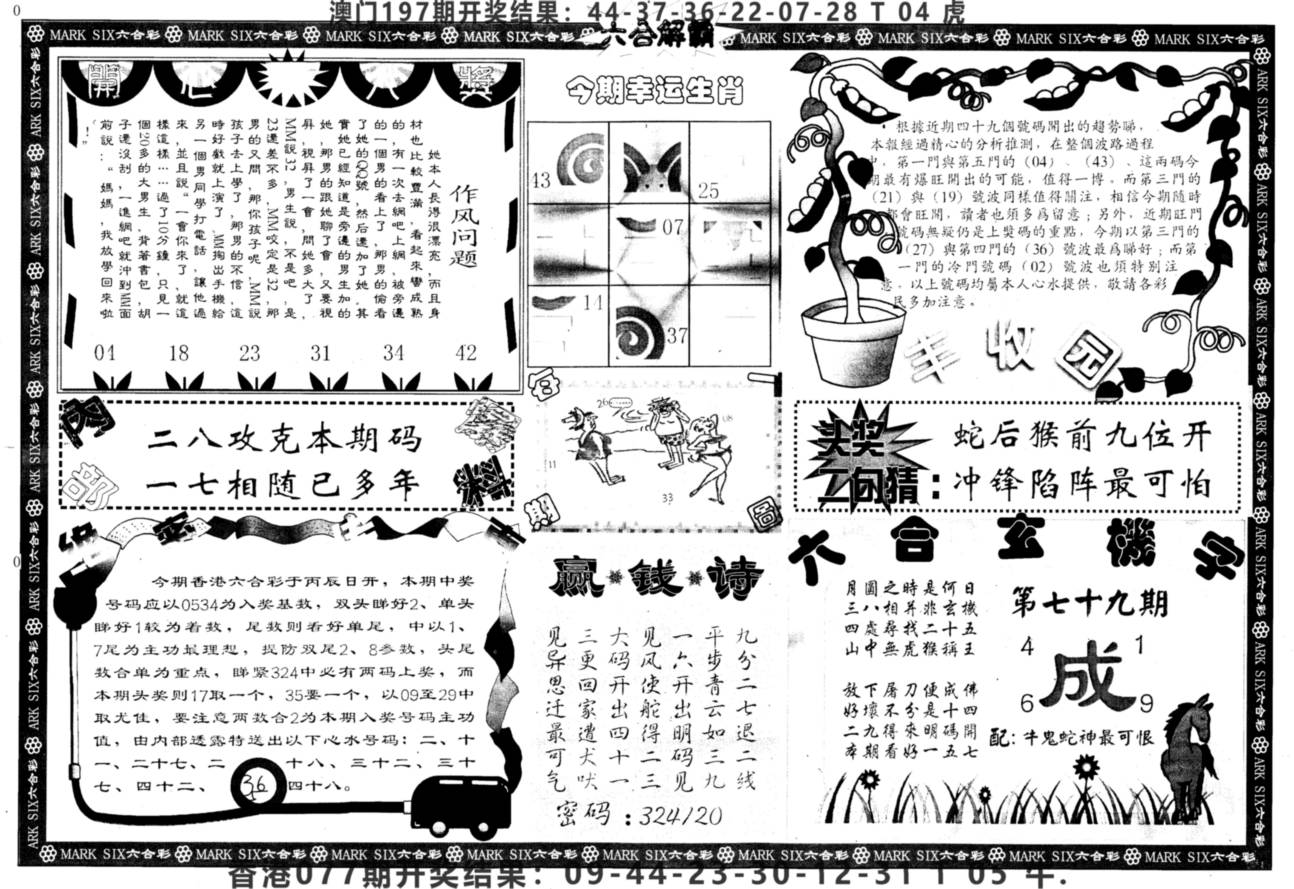 澳门197期开奖结果：44-37-36-22-07-28 T 04 虎
MARK SIX六合彩 MARK SIX六合彩 MARK SIX六合彩 MARK SIX六合彩
六合解霸
MARK SIX六合彩 MARK SIX六合彩 MARK SIX六合彩 MARK SIX六合彩
開心一八獎
作风问题
她本人長得很漂亮，而且身
材也比較豐滿，看起來蠻成熟
的，有一次去網吧上網，被旁邊
的一個男的看上了，那男的偷看
了她的QQ號，然后邊加了她，其
實她已經知道是旁邊的男生加的
她，那男的跟她聊了會，又要視
屏，視屏了一會，問她多大了，
MM說32，男生說，不是吧，是
23還差不多，MM咬定是32，那
男的又問，那你孩子呢，MM說
孩子去上學了，那男的不信，這
時好戲就上演了，MM掏出手機給
另一個男同學打電話，讓他過
來，並且說。一會你來了，就這
樣這樣……過了10分鐘，只見一
個20多的大男生，背著書包，胡
子還沒刮，一進網吧就沖到MM面
前說：“媽媽，我放學回來啦
！”
04 18 23 31 34 42
今期幸运生肖
43 25
07
14
37
根據近期四十九個號碼開出的趨勢睇，
本報經過精心的分析推測，在整個波路過程
中，第一門與第五門的（04）、（43）、這兩碼今
期最有爆旺開出的可能，值得一博，而第三門的
（21）與（19）號波同樣值得關注，相信今期隨時
都會旺開，讀者也須多爲留意；另外，近期旺門
號碼無疑仍是上獎碼的重點，今期以第三門的
（27）與第四門的（36）號波最爲睇好；而第
一門的冷門號碼（02）號波也須特别注
意，以上號碼均屬本人心水提供，敬請各彩
民多加注意。
丰收园
内部资料
二八攻克本期码
一七相随已多年
今期香港六合彩于丙辰日开，本期中奖
号码应以0534为入奖基数，双头睇好2、单头
睇好1较为着数，尾数则看好单尾，中以1、
7尾为主功最理想，提防双尾2、8参数，头尾
数合单为重点，睇紧324中必有两码上奖，而
本期头奖则17取一个，35要一个，以09至29中
取尤佳，要注意两数合2为本期入奖号码主功
值，由内部透露特送出以下心水号码：二、十
一、二十七、二 十八、三十二、三十
七、四十二、 36 四十八。
26
08
11
33
期
圖
赢钱诗
九分二七退二线
平步青云如三九
一六开出明码见
见风使舵得二三
大码开出四十一
三更回家遭犬吠
见异思迁最可气
密码：324/20
头奖
二句猜：
蛇后猴前九位开
冲锋陷阵最可怕
六合玄機字
月圓之時是何日
三八相并非玄機
四處尋找二十五
山中無虎猴稱王
放下屠刀便成佛
好壞不分是十四
二九得來明碼開
本期看好一五七
第七十九期
4 1
成
6 9
配：牛鬼蛇神最可恨
MARK SIX六合彩 MARK SIX六合彩 MARK SIX六合彩 MARK SIX六合彩 MARK SIX六合彩 MARK SIX六合彩 MARK SIX六合彩 MARK SIX六合彩 MARK SIX六合彩
香港077期开奖结果：09-44-23-30-12-31 T 05 牛.